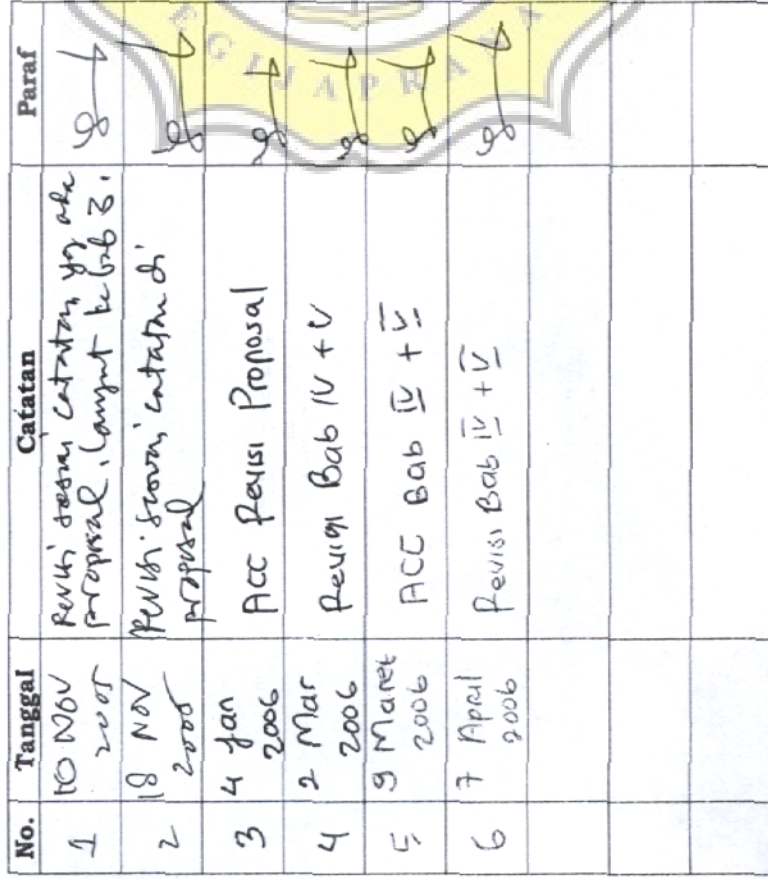 No. Tanggal Catatan Paraf
1 10 Nov 2005 Revisi sesuai catatan yg ada
proposal, lanjut ke bab 3.
2 18 Nov 2005 Revisi sesuai catatan di
proposal
3 4 Jan 2006 ACC Revisi Proposal
4 2 Mar 2006 Revisi Bab IV + V
5 9 Maret 2006 ACC Bab IV + V
6 7 April 2006 Revisi Bab IV + V
EGIJAPRANA